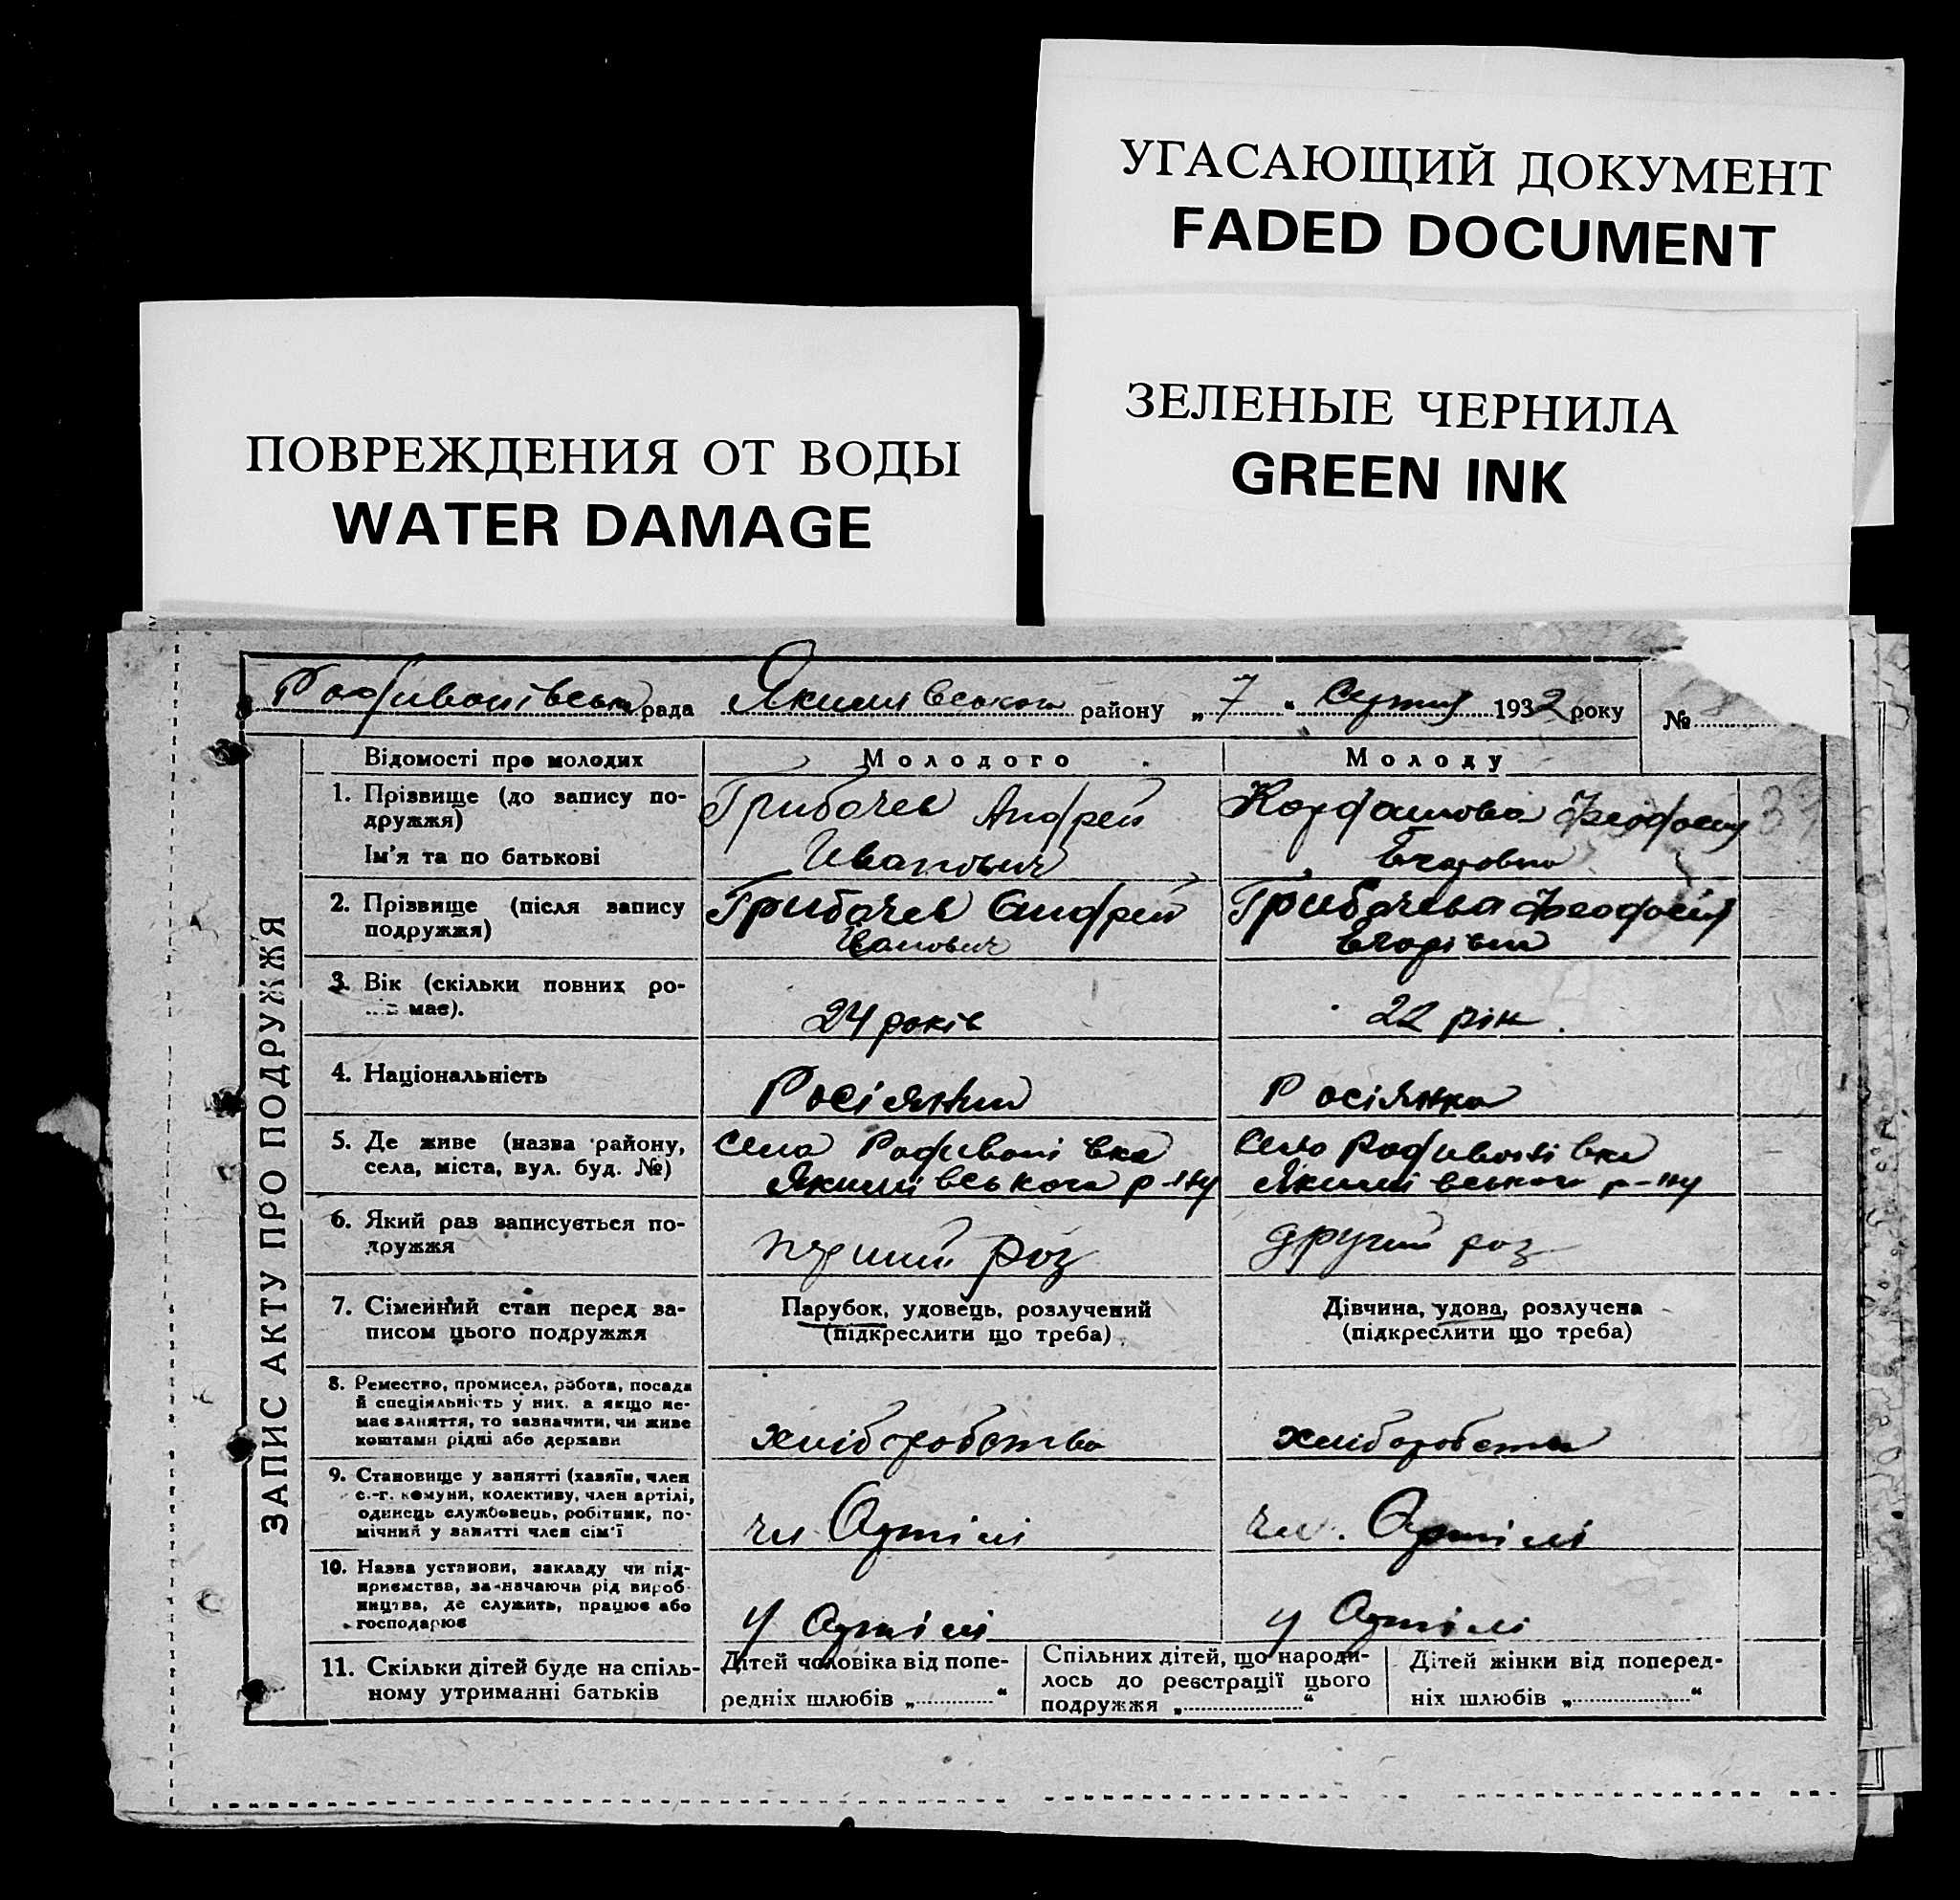 УГАСАЮЩИЙ ДОКУМЕНТ
FADED DOCUMENT
ЗЕЛЕНЫЕ ЧЕРНИЛА
GREEN INK
ПОВРЕЖДЕНИЯ ОТ ВОДЫ
WATER DAMAGE
Родивонівська рада Якимівського району „ 7 “ 1932 року № 8
ЗАПИС АКТУ ПРО ПОДРУЖЖЯ
Відомості про молодих Молодого Молоду
1. Прізвище (до запису по-
дружжя)
Ім'я та по батькові
Грибачев Андрей
Иванович
Феодосия
Егоровна
2. Прізвище (після запису
подружжя)
Грибачев Андрей
Іванович
Грибачева Феодосія
Егорівна
3. Вік (скільки повних ро-
має).
24 років
22 рік
4. Національність
Росіянин
Росіянка
5. Де живе (назва району,
села, міста, вул. буд. №)
село Родивонівка
Якимівського р-ну
село Родивонівка
Якимівського р-ну
6. Який раз записується по-
дружжя
перший раз
другий раз
7. Сімейний стан перед за-
писом цього подружжя
Парубок, удовець, розлучений
(підкреслити що треба)
Дівчина, удова, розлучена
(підкреслити що треба)
8. Ремество, промисел, робота, посада
й спеціяльність у них, а якщо не-
має заняття, то зазначити, чи живе
коштами рідні або держави
хліборобство
хліборобство
9. Становище у занятті (хазяїн, член
с.-г. комуни, колективу, член артілі,
одинець службовець, робітник, по-
мічний у занятті член сім'ї
чл. Артілі
чл. Артілі
10. Назва установи, закладу чи під-
приємства, зазначаючи рід вироб-
ництва, де служить, працює або
господарює
у Артілі
у Артілі
11. Скільки дітей буде на спіль-
ному утриманні батьків
Дітей чоловіка від попе-
редніх шлюбів „............“
Спільних дітей, що народи-
лось до реєстрації цього
подружжя „............“
Дітей жінки від поперед-
ніх шлюбів „............“